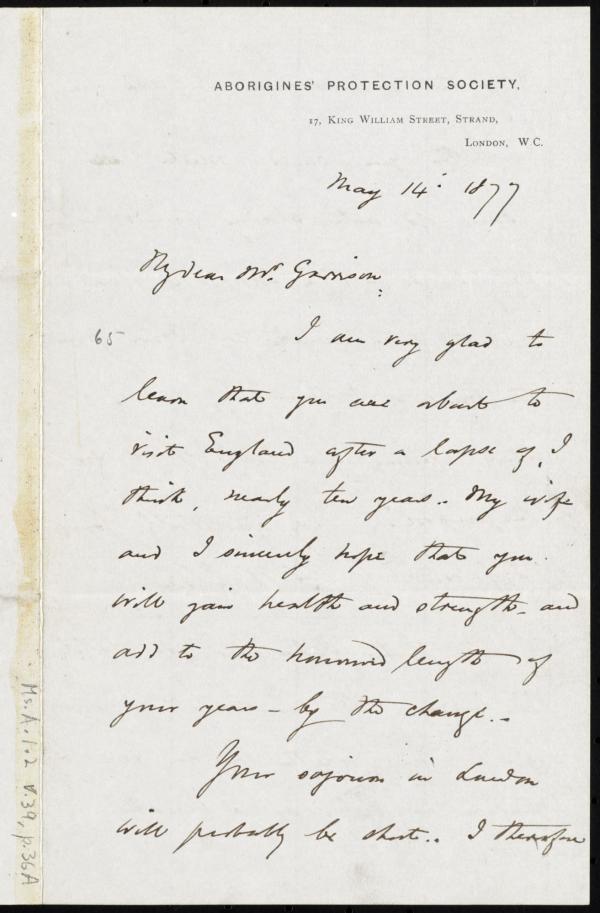 ABORIGINES' PROTECTION SOCIETY,
17, KING WILLIAM STREET, STRAND,
LONDON, W.C.
May 14. 1877
My dear Mr. Garrison,
65
I am very glad to
learn that you are about to
visit England after a lapse of, I
think, nearly ten years. My wife
and I sincerely hope that you
will gain health and strength - and
add to the honoured length of
your years - by the change. -
Your sojourn in London
will probably be short. I therefore
Ms. A. 1. 2 v. 39, p. 36A